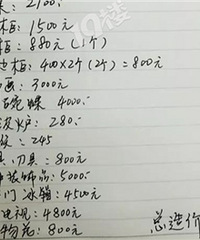 19楼
: 2100.
柜: 1500元
柜: 880元 (1个)
柜: 400×2个 (2个) = 800元
画: 3000元
碗碟 4000.
波炉: 280.
: 245
刀具: 800元
装饰品: 5000.
门冰箱: 4500元
电视: 4800元
物花: 800元
总造价